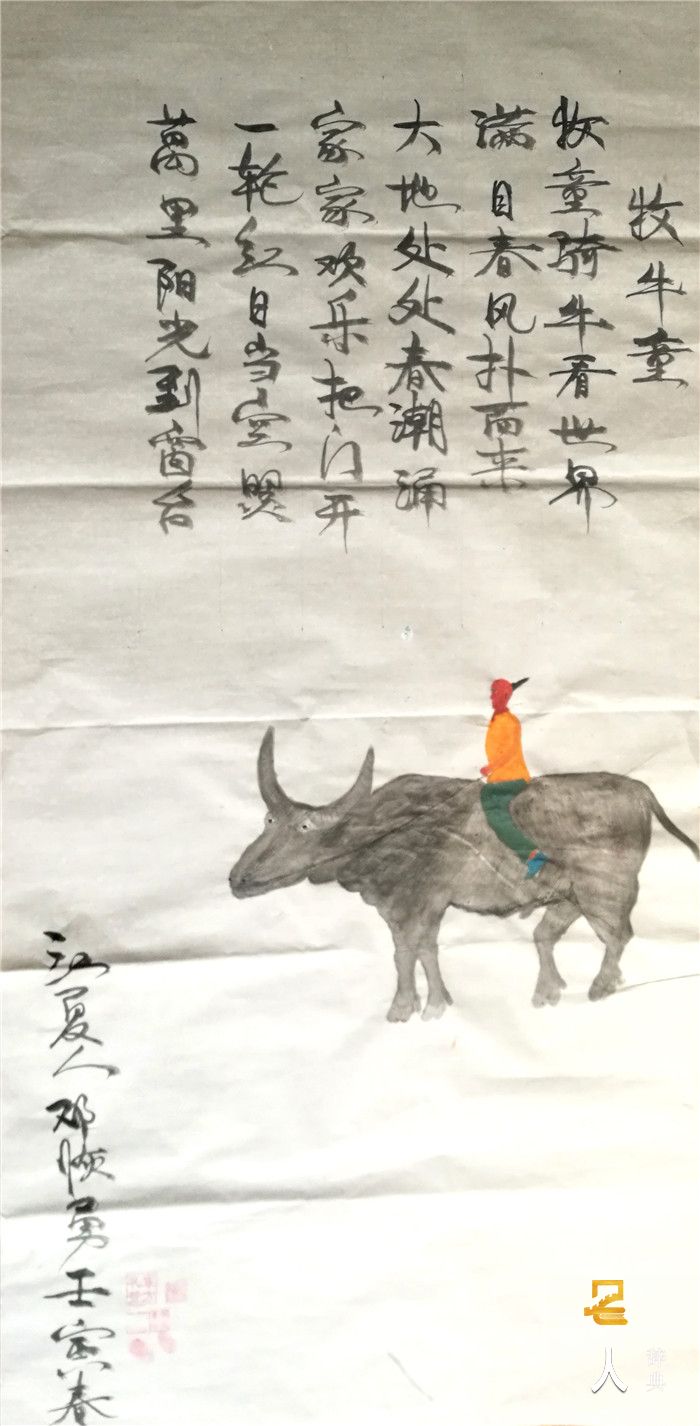 牧牛童
牧童骑牛看世界
满目春风扑面来
大地处处春潮涌
家家欢乐把门开
一轮红日当空照
萬里阳光到窗台
江夏人邓恢勇壬寅春
名人
辞典